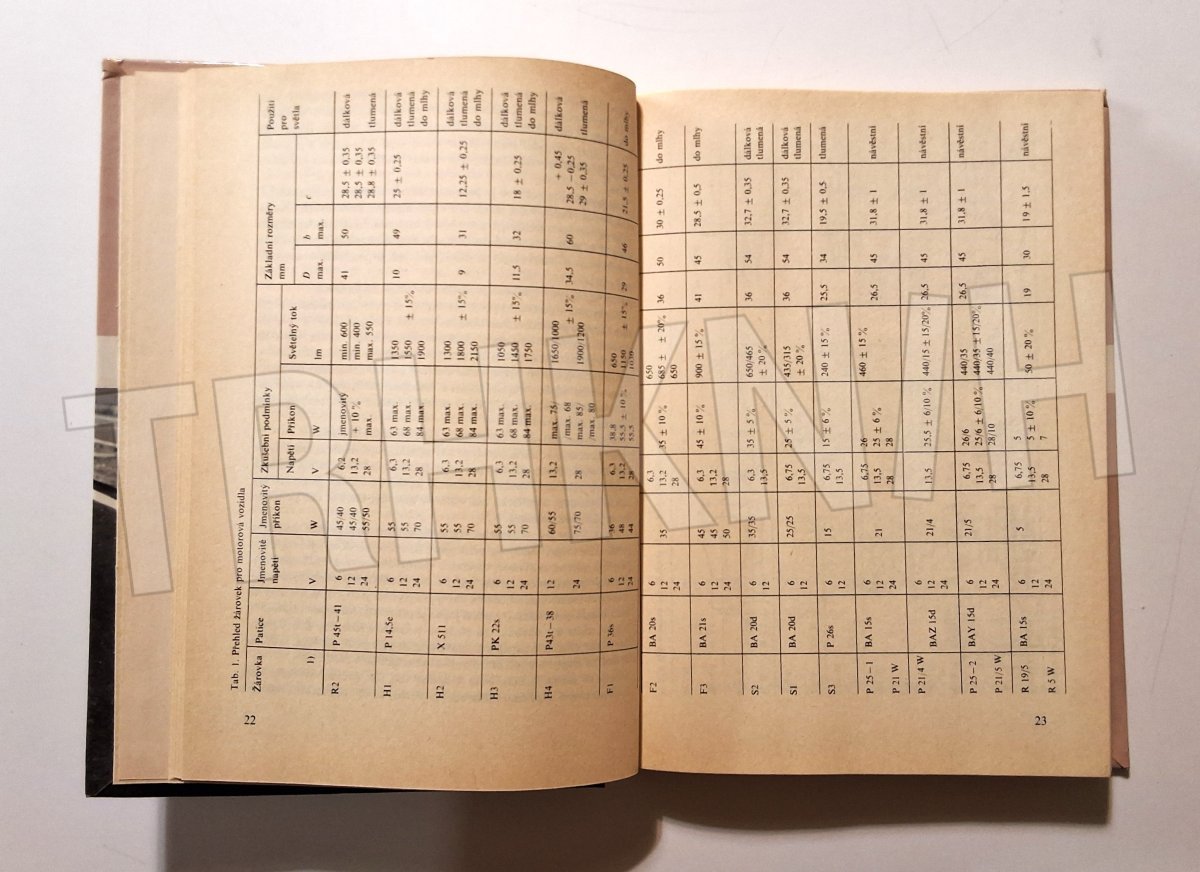 Tab. 1. Přehled žárovek pro motorová vozidla
Žárovka 1) Patice Jmenovité napětí V Jmenovitý příkon W Zkušební podmínky Napětí V Příkon W Světelný tok lm Základní rozměry mm D max. b max. c Použití pro světla
R2 P 45t–41 6 45/40 6,2 jmenovitý min. 600 41 50 28,5 ± 0,35 dálková
12 45/40 13,2 + 10 % min. 400 28,5 ± 0,35
24 55/50 28 max. max. 550 28,8 ± 0,35 tlumená
H1 P 14,5e 6 55 6,3 63 max. 1350 10 49 25 ± 0,25 dálková
12 55 13,2 68 max. 1550 ± 15% tlumená
24 70 28 84 max. 1900 do mlhy
H2 X 511 6 55 6,3 63 max. 1300 9 31 12,25 ± 0,25 dálková
12 55 13,2 68 max. 1800 ± 15% tlumená
24 70 28 84 max. 2150 do mlhy
H3 PK 22s 6 55 6,3 63 max. 1050 11,5 32 18 ± 0,25 dálková
12 55 13,2 68 max. 1450 ± 15% tlumená
24 70 28 84 max. 1750 do mlhy
H4 P43t–38 12 60/55 13,2 max. 75/ /max. 68 1650/1000 ± 15% 34,5 60 28,5 + 0,45 − 0,25 dálková
24 75/70 28 max. 85/ /max. 80 1900/1200 29 ± 0,35 tlumená
F1 P 36s 6 36 6,3 38,8 650 29 46 21,5 ± 0,25 do mlhy
12 48 13,2 55,5 ± 10 % 1150 ± 15%
24 44 28 55,5
22
F2 BA 20s 6 6,3 650 36 50 30 ± 0,25 do mlhy
12 35 13,2 35 ± 10 % 685 ± ± 20%
24 28 650
F3 BA 21s 6 45 6,3 45 ± 10 % 900 ± 15 % 41 45 28,5 ± 0,5 do mlhy
12 45 13,2
24 50 28
S2 BA 20d 6 35/35 6,3 35 ± 5 % 650/465 36 54 32,7 ± 0,35 dálková
12 13,5 ± 20 % tlumená
S1 BA 20d 6 25/25 6,75 25 ± 5 % 435/315 36 54 32,7 ± 0,35 dálková
12 13,5 ± 20 % tlumená
S3 P 26s 6 15 6,75 15 ± 6 % 240 ± 15 % 25,5 34 19,5 ± 0,5 tlumená
12 13,5
P 25–1 BA 15s 6 6,75 26 460 ± 15 % 26,5 45 31,8 ± 1 návěstní
12 21 13,5 25 ± 6 %
P 21 W 24 28 28
P 21/4 W BAZ 15d 6 12 24 21/4 13,5 25,5 ± 6/10 % 440/15 ± 15/20% 26,5 45 31,8 ± 1 návěstní
P 25–2 BAY 15d 6 21/5 6,75 26/6 440/35 26,5 45 31,8 ± 1 návěstní
12 13,5 25/6 ± 6/10 % 440/35 ± 15/20%
P 21/5 W 24 28 28/10 440/40
R 19/5 BA 15s 6 6,75 5 50 ± 20 % 19 30 19 ± 1,5 návěstní
12 5 13,5 5 ± 10 %
R 5 W 24 28 7
23
TRHKNIH